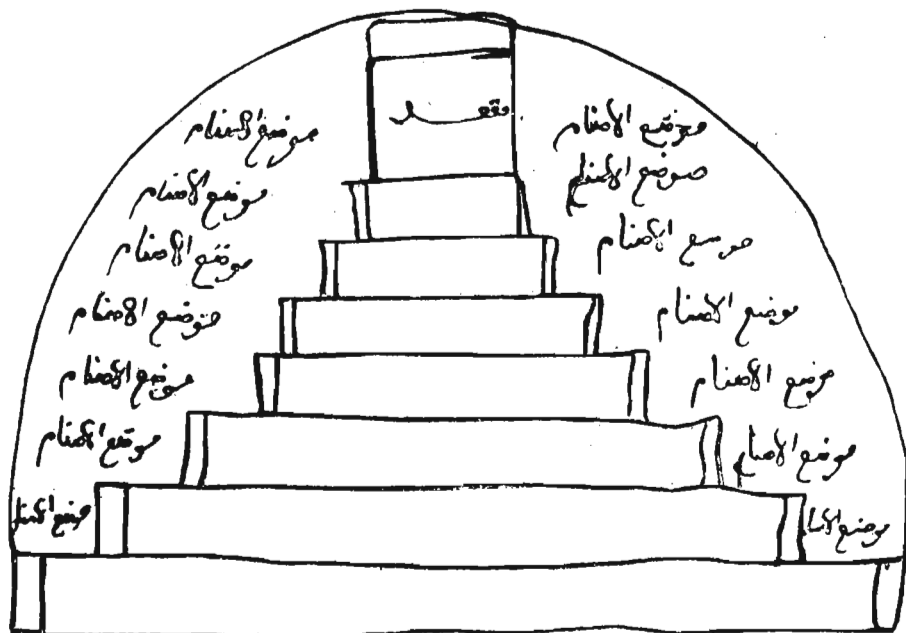 مقعد
موضع الاصنام
موضع الاصنام
موضع الاصنام
موضع الاصنام
موضع الاصنام
موضع الاصنام
موضع الاصنام
موضع الاصنام
موضع الاصنام
موضع الاصنام
موضع الاصنام
موضع الاصنام
موضع الاصنام
موضع الاصنام